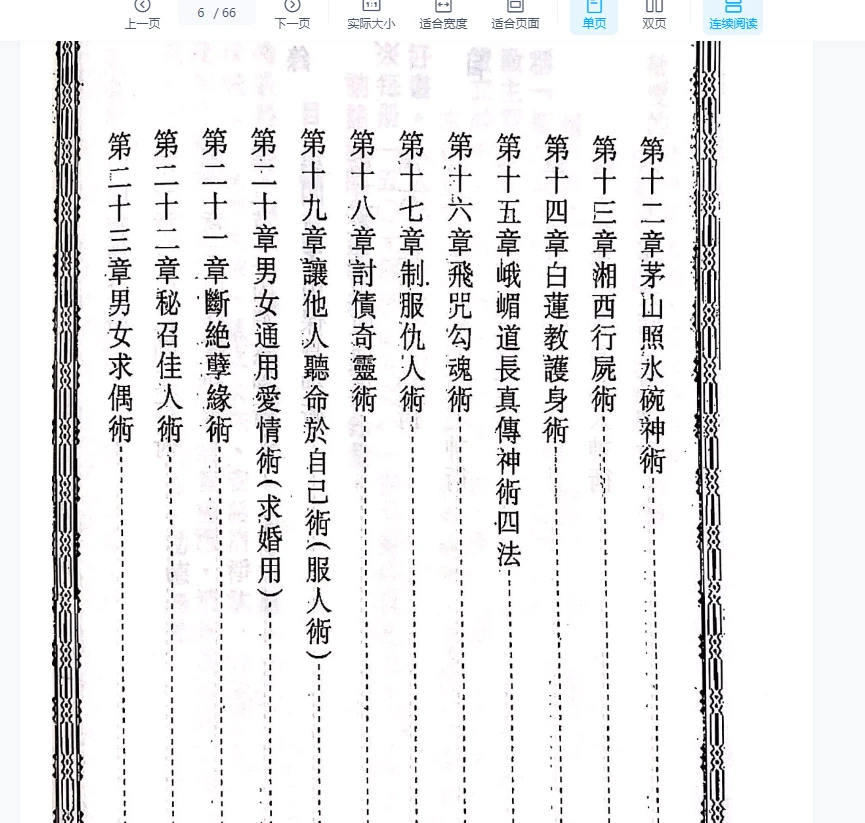 上一页
6 / 66
下一页
实际大小
适合宽度
适合页面
单页
双页
连续阅读
第十二章茅山照水碗神術
第十三章湘西行屍術
第十四章白蓮教護身術
第十五章峨嵋道長真傳神術四法
第十六章飛咒勾魂術
第十七章制服仇人術
第十八章討債奇靈術
第十九章讓他人聽命於自己術(服人術)
第二十章男女通用愛情術(求婚用)
第二十一章斷絕孽緣術
第二十二章秘召佳人術
第二十三章男女求偶術